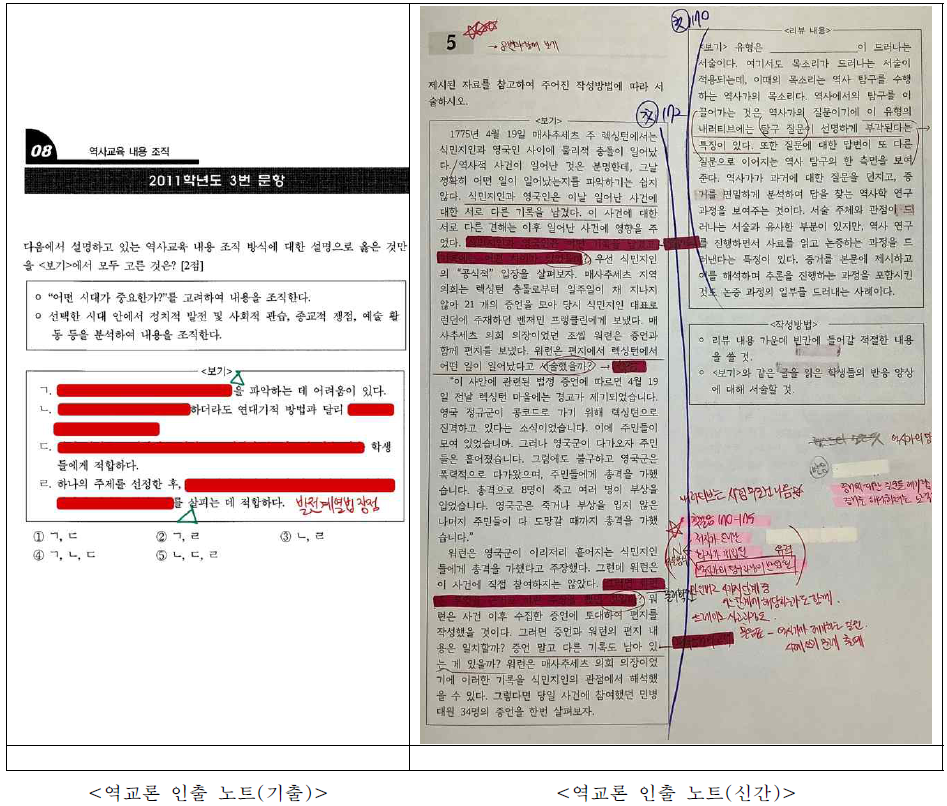 08 역사교육 내용 조직
2011학년도 3번 문항
다음에서 설명하고 있는 역사교육 내용 조직 방식에 대한 설명으로 옳은 것만
을 <보기>에서 모두 고른 것은? [2점]
○ “어떤 시대가 중요한가?”를 고려하여 내용을 조직한다.
○ 선택한 시대 안에서 정치적 발전 및 사회적 관습, 종교적 쟁점, 예술 활
동 등을 분석하여 내용을 조직한다.
<보기>
ㄱ. 을 파악하는 데 어려움이 있다.
ㄴ. 하더라도 연대기적 방법과 달리
ㄷ. 학생
들에게 적합하다.
ㄹ. 하나의 주제를 선정한 후,
를 살피는 데 적합하다. 발전계열법 강점
① ㄱ, ㄷ ② ㄱ, ㄹ ③ ㄴ, ㄹ
④ ㄱ, ㄴ, ㄷ ⑤ ㄴ, ㄷ, ㄹ
<역교론 인출 노트(기출)>
5
제시된 자료를 참고하여 주어진 작성방법에 따라 서
술하시오.
172
<보기>
1775년 4월 19일 매사추세츠 주 렉싱턴에서는
식민지인과 영국인 사이에 물리적 충돌이 일어났
다. 역사적 사건이 일어난 것은 분명한데, 그날
정확히 어떤 일이 일어났는지를 파악하기는 쉽지
않다. 식민지인과 영국인은 이날 일어난 사건에
대한 서로 다른 기록을 남겼다. 이 사건에 대한
서로 다른 견해는 이후 일어난 사건에 영향을 주
었다.
? 우선 식민지인
의 “공식적” 입장을 살펴보자. 매사추세츠 지역
의회는 렉싱턴 충돌로부터 일주일이 채 지나지
않아 21 개의 증언을 모아 당시 식민지인 대표로
런던에 주재하던 벤저민 프랭클린에게 보냈다. 매
사추세츠 의회 의장이었던 조셉 워런은 증언과
함께 편지를 보냈다. 워런은 편지에서 렉싱턴에서
어떤 일이 일어났다고 서술했을까?
“이 사안에 관련된 법정 증언에 따르면 4월 19
일 전날 렉싱턴 마을에는 경고가 제기되었습니다.
영국 정규군이 콩코드로 가기 위해 렉싱턴으로
진격하고 있다는 소식이었습니다. 이에 주민들이
모여 있었습니다. 그러나 영국군이 다가오자 주민
들은 흩어졌습니다. 그럼에도 불구하고 영국군은
폭력적으로 다가왔으며, 주민들에게 총격을 가했
습니다. 총격으로 8명이 죽고 여러 명이 부상을
입었습니다. 영국군은 죽거나 부상을 입지 않은
나머지 주민들이 다 도망갈 때까지 총격을 가했습
니다.”
워런은 영국군이 이리저리 흩어지는 식민지인
들에게 총격을 가했다고 주장했다. 그런데 워런은
이 사건에 직접 참여하지는 않았다.
? 워
런은 사건 이후 수집한 증언에 토대하여 편지를
작성했을 것이다. 그러면 증언과 워런의 편지 내
용은 일치할까? 증언 말고 다른 기록도 남아 있
는 게 있을까? 워런은 매사추세츠 의회 의장이었
기에 이러한 기록을 식민지인의 관점에서 해석했
을 수 있다. 그렇다면 당일 사건에 참여했던 민병
대원 34명의 증언을 한번 살펴보자.
170
<리뷰 내용>
<보기> 유형은 이 드러나는
서술이다. 여기서도 목소리가 드러나는 서술이
적용되는데, 이때의 목소리는 역사 탐구를 수행
하는 역사가의 목소리다. 역사에서의 탐구를 이
끌어가는 것은 역사가의 질문이기에 이 유형의
내러티브에는 탐구 질문이 선명하게 부각된다는
특징이 있다. 또한 질문에 대한 답변이 또 다른
질문으로 이어지는 역사 탐구의 한 측면을 보여
준다. 역사가가 과거에 대한 질문을 던지고, 증
거를 면밀하게 분석하여 답을 찾는 역사학 연구
과정을 보여주는 것이다. 서술 주체와 관점이 드
러나는 서술과 유사한 부분이 있지만, 역사 연구
를 진행하면서 사료를 읽고 논증하는 과정을 드
러낸다는 특징이 있다. 증거를 본문에 제시하고
이를 해석하며 추론을 진행하는 과정을 포함시킨
것도 논증 과정의 일부를 드러내는 사례이다.
<작성방법>
○ 리뷰 내용 가운데 빈칸에 들어갈 적절한 내용
을 쓸 것.
○ <보기>와 같은 글을 읽은 학생들의 반응 양상
에 대해 서술할 것.
170-175
<역교론 인출 노트(신간)>